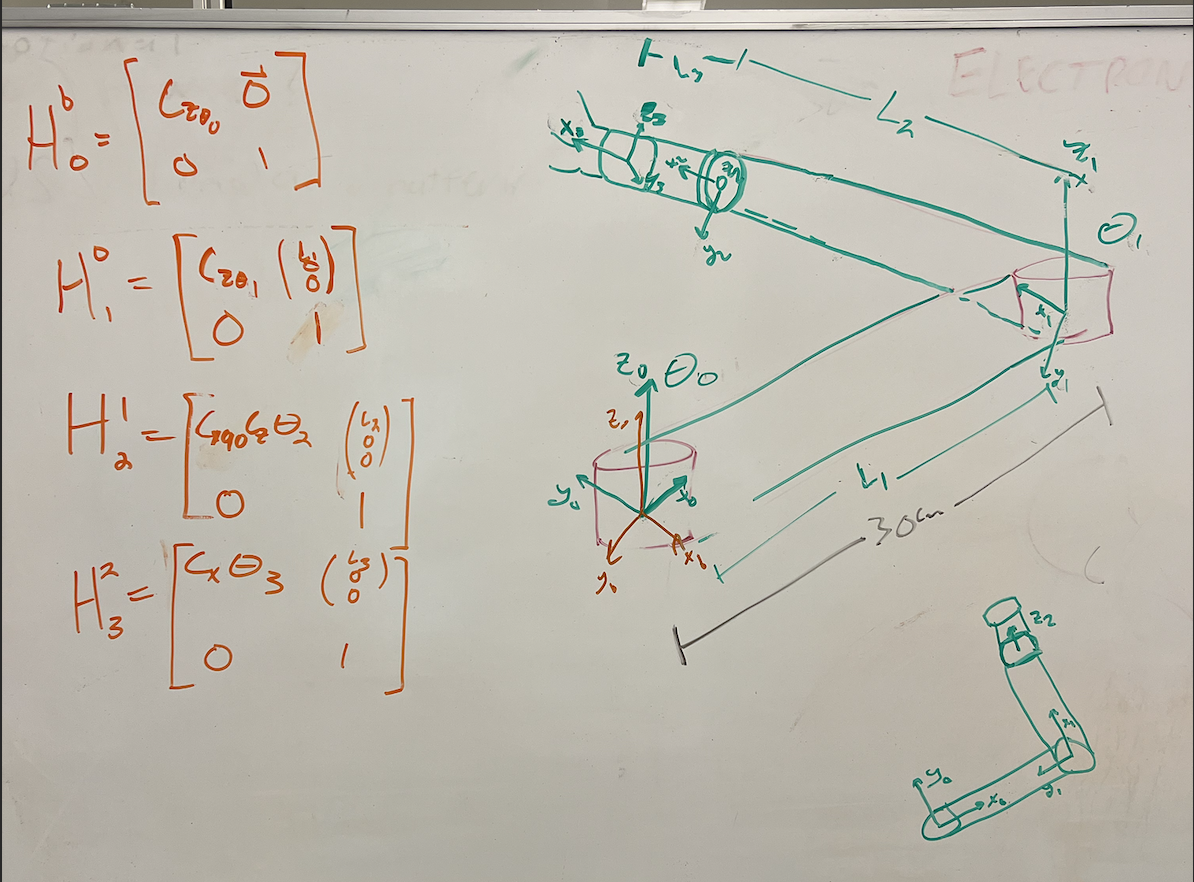 H₀ᵇ = [ C_zθ₀ 0⃗
0 1 ]
H₁⁰ = [ C_zθ₁ (L₁ 0 0)
0 1 ]
H₂¹ = [ C_x90 C_z θ₂ (L₂ 0 0)
0 1 ]
H₃² = [ C_x θ₃ (L₃ 0 0)
0 1 ]
ELECTRON
L₃
L₂
z₁
θ₁
x₃
z₃
y₃
x₂
z₂
y₂
x₁
y₁
z₀
θ₀
y₀
x₀
x_b
y_b
L₁
30cm
z₂
x₁
y₁
y₀
x₀